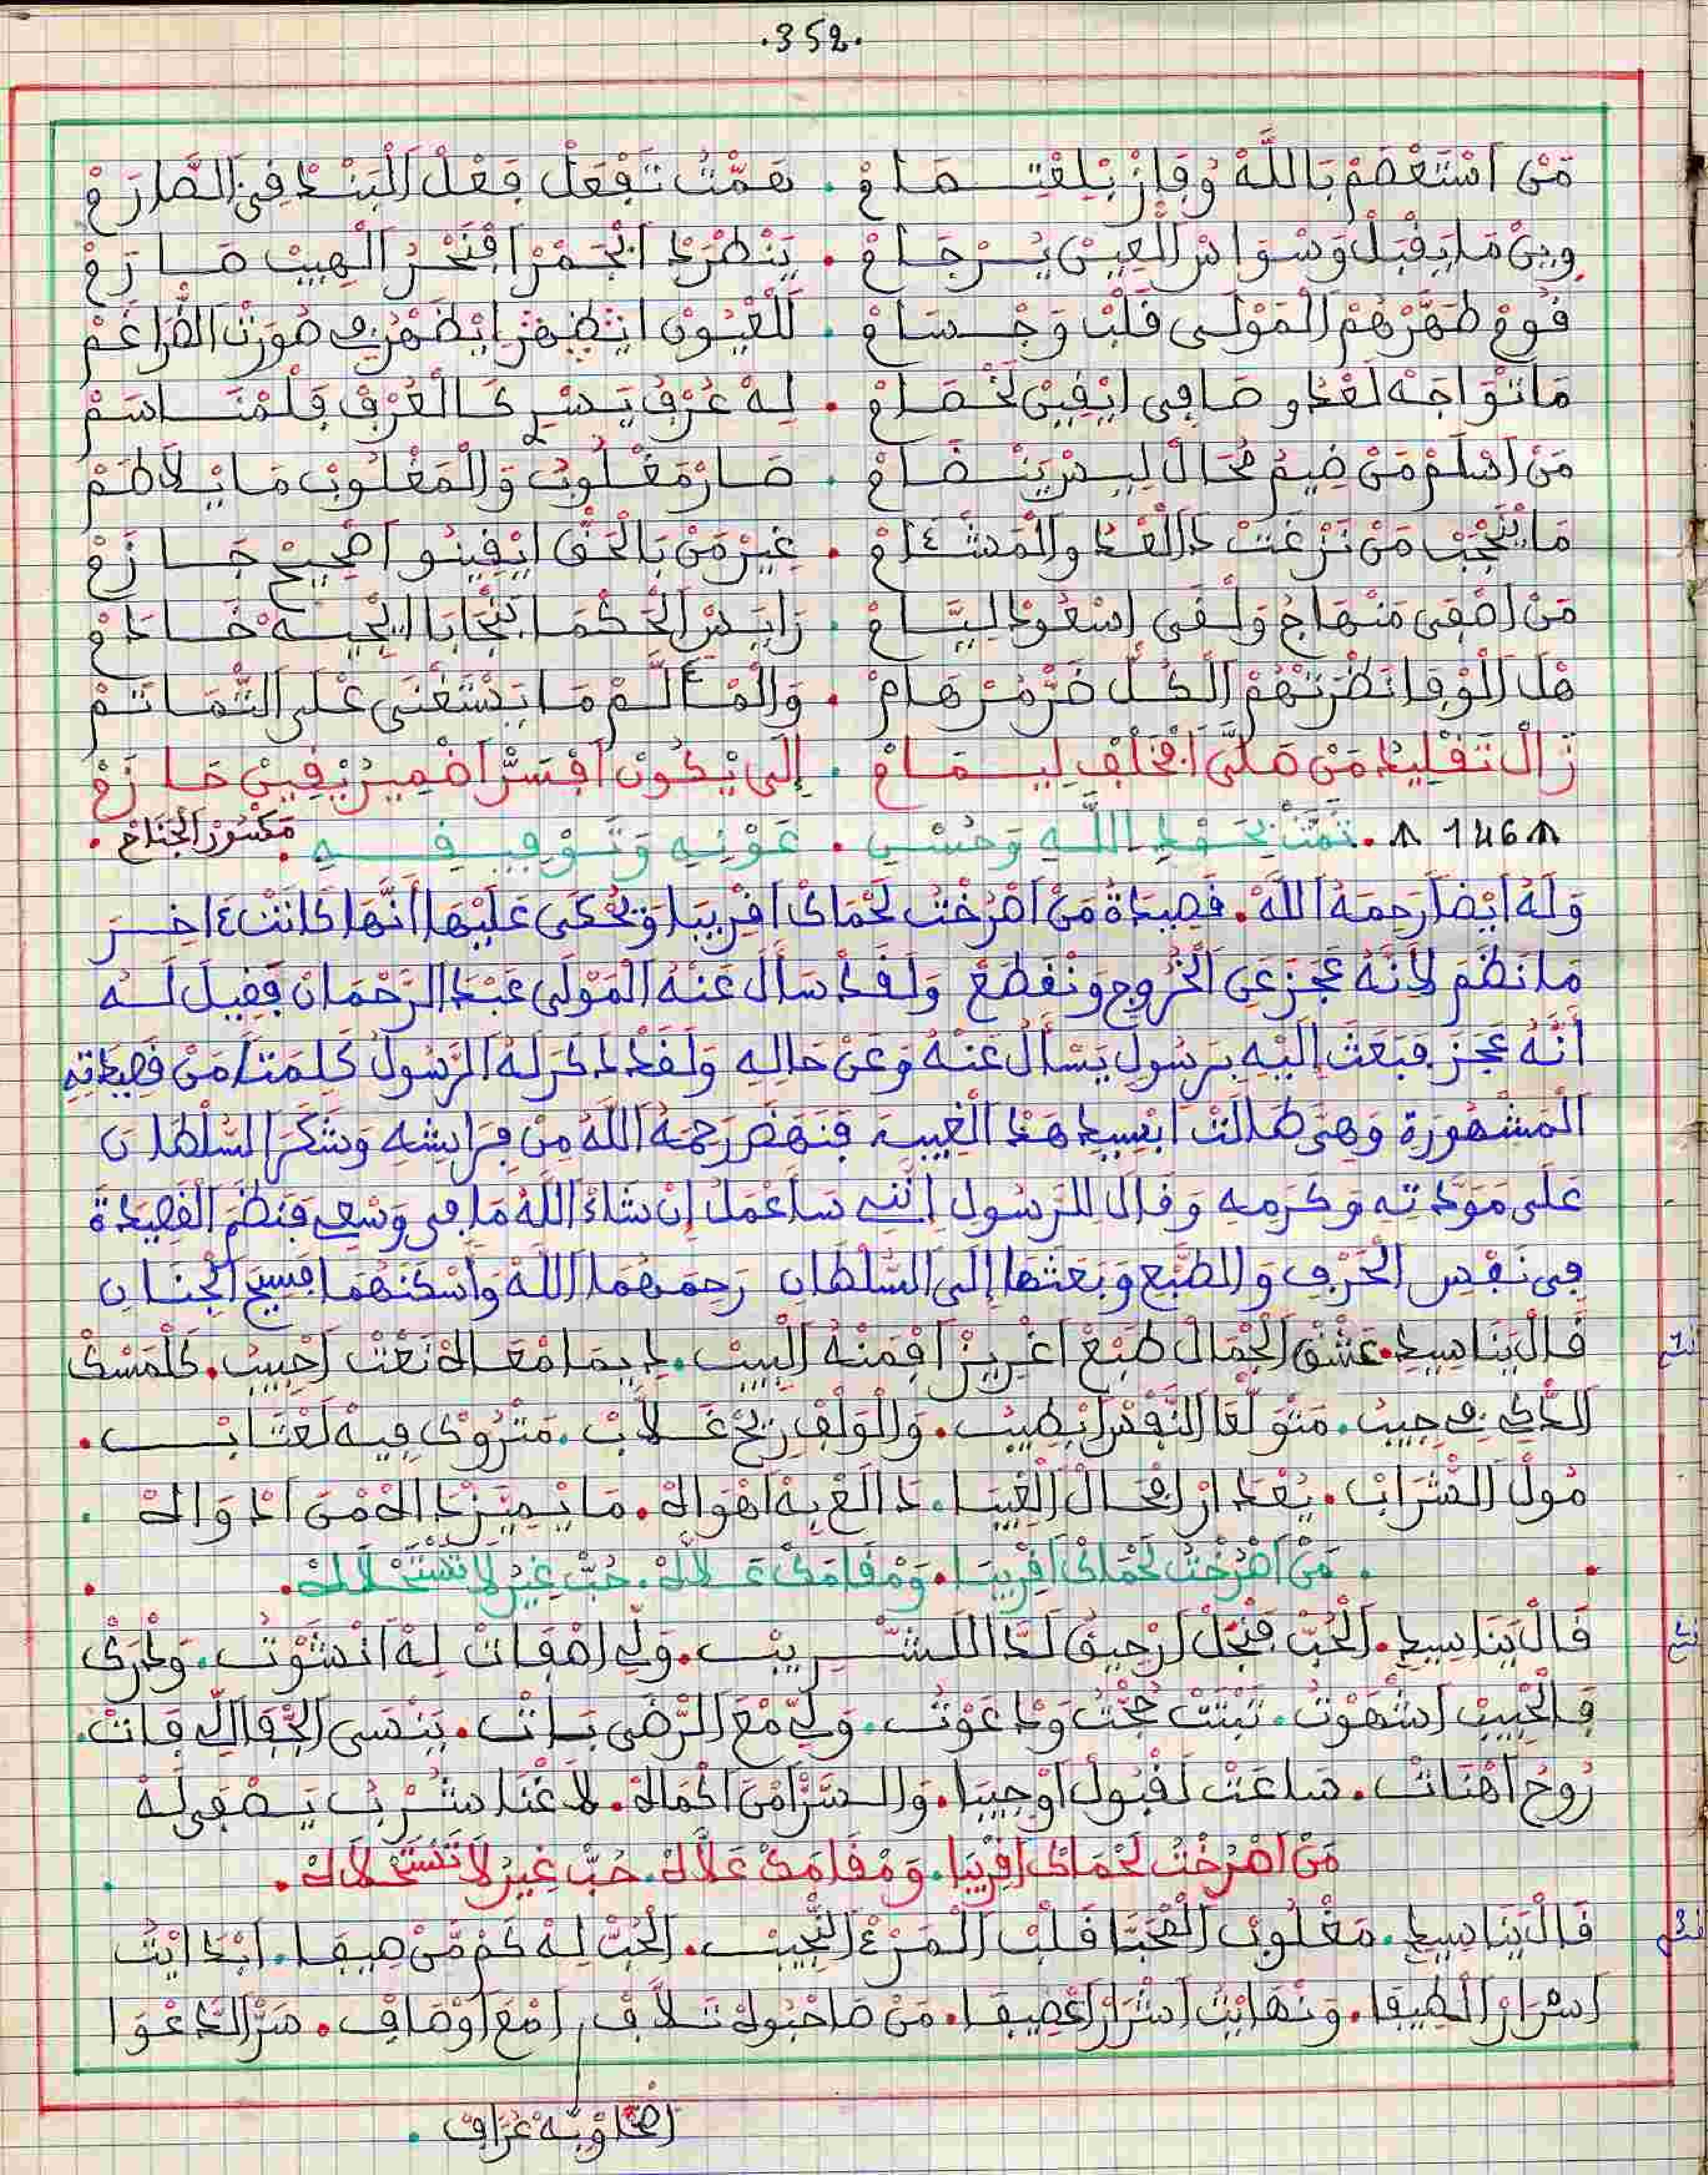 .352.
مَنْ اسْتَعْصَمْ بَاللَّهْ وُفَازْ بْلِفْتِـــهَامْ . هَمْتُ تَفْعَلْ فِعْلْ الْبَنْدْ فِي الصَّارَمْ
وِينْ مَا يِقْبَلْ وَسْوَاسْ الْعِينْ يُـــرْجَامْ . يَنْطْرَدْ الْجَمْرْ افْنَحْرْ الْهِيبْ صَـارَمْ
قُومْ طَهَّرْهُمْ الْمَوْلَى قَلْبْ وَجْـــسَامْ . لَلْعْيُونْ ايَظْهَرْ ايَظْهَرْ فِي صُورَتْ الضَّرَاغَمْ
مَا تْوَاجَهْ لَعْدُو صَافِي ايْقِينْ لَخْصَامْ . لِهْ عَرْفْ يَسْرِي كَالْعَرْفْ فَلْمْنَـــاسَمْ
مَنْ اسْلَمْ مَنْ ضِيمُ مُحَالْ لِيـسْ يَنْـــضَامْ . صَارْ مَغْلُوبُ وَالْمَغْلُوبْ مَا يْلاَطَمْ
مَا يْنَجْبْ مَنْ نَزْغَتْ دَالْعْدُ والْمَشْـئَامْ . غِيرْ مَنْ بَالْحَقْ ايْقِينُـو اصْحِيحْ جَـــازَمْ
مَنْ اصْفَى مَنْهَاجُ وَلْقَى اسْعُودْ لِيَّـــامْ . رَايَسْ الْحَكْمَا بَنْجَابَا ايْجِيـــهْ خَـــادَمْ
هَلْ الْوْفَا نَظْرَتْهُمْ الْكُلْ ضَرْ مَرْهَامْ . وَالْمْئَـــلَّمْ مَا يَسْتَغْنَى عْلَى التّْمَاتَمْ
زَالْ تَقْلِيدْ مَنْ صَلَّى افْخَلْفْ لِيـــمَامْ . إِلَى يْكُونْ افْسَرّْ اضْمِيرْ يْقِينْ حَـــازَمْ
146 . تَمَّتْ بِحَمْدِ اللَّـــهِ وَحُسْنِ . عَوْنِهِ وَتَوْفِيقِـــــهِ . مَكْسُورْ الْجَنَاحْ .
وَلَهُ أَيْضاً رَحِمَهُ اللَّهْ . قَصِيدَةُ مَنْ اصْرَخْتُ لَحْمَاكْ اقْرِيبَا وَيُحْكَى عَلَيْهَا أَنَّهَا كَانَتْ ءَاخِـــرَ
مَا نَظَمَ لِأَنَّهُ عَجَزَ عَنِ الْخُرُوجِ وَنْقَطَعَ وَلَقَدْ سَأَلَ عَنْهُ الْمَوْلَى عَبْدُ الرَّحْمَانْ فَقِيلَ لَـــهُ
أَنَّهُ عَجَزَ فَبَعَثَ إِلَيْهِ بِرَسُولٍ يَسْأَلُ عَنْهُ وَعَنْ حَالِهِ وَلَقَدْ ذَكَرَ لَهُ الرَّسُولُ كَلِمَتاً مَنْ قَصِيدَتِهِ
الْمَشْهُورَةِ وَهِيَ طَالَتْ ابْسِيدِي هَذْ الْغِيبَـــه فَنَهَضَ رَحِمَهُ اللَّهُ مِنْ فِرَايشِهِ وَشَكَرَ السُّلْطَانَ
عَلَى مَوَدَّتِهِ وَكَرَمِهِ وَقَالَ لِلرَّسُولِ إِنَّنِي سَأَعْمَلُ إِنْ شَاءَ اللَّهُ مَا فِي وَسْعِي فَنَظَمَ الْقَصِيدَةَ
فِي نَفْسِ الْحَرْفِ وَالطَّبْعِ وَبَعَثَهَا إِلَى السُّلْطَانِ رَحِمَهُمَا اللَّهُ وَأَسْكَنَهُمَا فَسِيحَ الْجِنَانِ
قَالْ يَنَا سِيدِي . عَشْقْ الْجْمَالْ طَبْعْ اغْرِيزْ افْمَنْهُ الْبِيبْ . دِيمَا مْعَاهْ نَعْتْ احْبِيبْ . كَلْمَسْكْ
الدَّاكِي فِي جِيبْ . مَتْوَلّعَا النَّفْسْ ابْطِيبْ . وَالْوَلْفْ رِيحْ غَـــلاَّبْ . مَتْرُوكْ فِيهْ لَعْتَـــابْ .
مُولْ الشْرَابْ . يُعْدَارْ افْحَالْ الْغِيبَا . دَالَعْ بِهْ اهْوَاهْ . مَا يْمِيَّزْ دَاهْ مْنْ ادْوَاهْ .
. مَنْ اصْرَخْتُ لَحْمَاكْ اقْرِيبَا . وَمْقَامَكْ عَـــلاَّهْ . حُبّْ غِيرْ لاَ تَسْتَحْلاَهْ .
قَالْ يَنَا سِيدِي . الْحُبّْ فَنْجَلْ ارْحِيقْ لَدَّا اللـــشْـــرِيبْ . وَلِّي اصْفَاتْ لِهْ انْشَوْتُ . وَدْرَكْ
فَالْحْبِيبْ اشْهَوْتُ . تَبْتَتْ حُجْتُ وَدْعَوْتُ . وَلِّي مْعَ الرّْضَى بَـــاتْ . يَنْسَى الْجْفَا اللِّي فَاتْ .
رُوحُ اهْنَاتْ . سَاعَتْ لَقْبُولْ اوْجِيبَا . وَالسَّرّْ امْنْ اكْمَاهْ . لاَغْنَا شَـــرْبُ يَـــصْفَى لَهْ
مَنْ اصْرَخْتُ لَحْمَاكْ اقْرِيبَا . وَمْقَامَكْ عَلاَّهْ . حُبّْ غِيرْ لاَ تَسْتَحْلاَهْ .
قَالْ يَنَا سِيدِي . مَغْلُوبْ الْمْحَبَّا قَلْبْ الْمَرْءْ النَّجِيبْ . الْحُبّْ لِهْ كَمْ مّنْ صِيفَا . ابْدَايْتُ
اسْرَارْ الْطِيفَا . وَنْهَايْتُ اسْرَارْ اعْصِيفَا . مَنْ صَاحْبُوهْ تَـــلاَّفْ . امْعَ اوْصَافْ . سَرّْ الدَّعْوَا